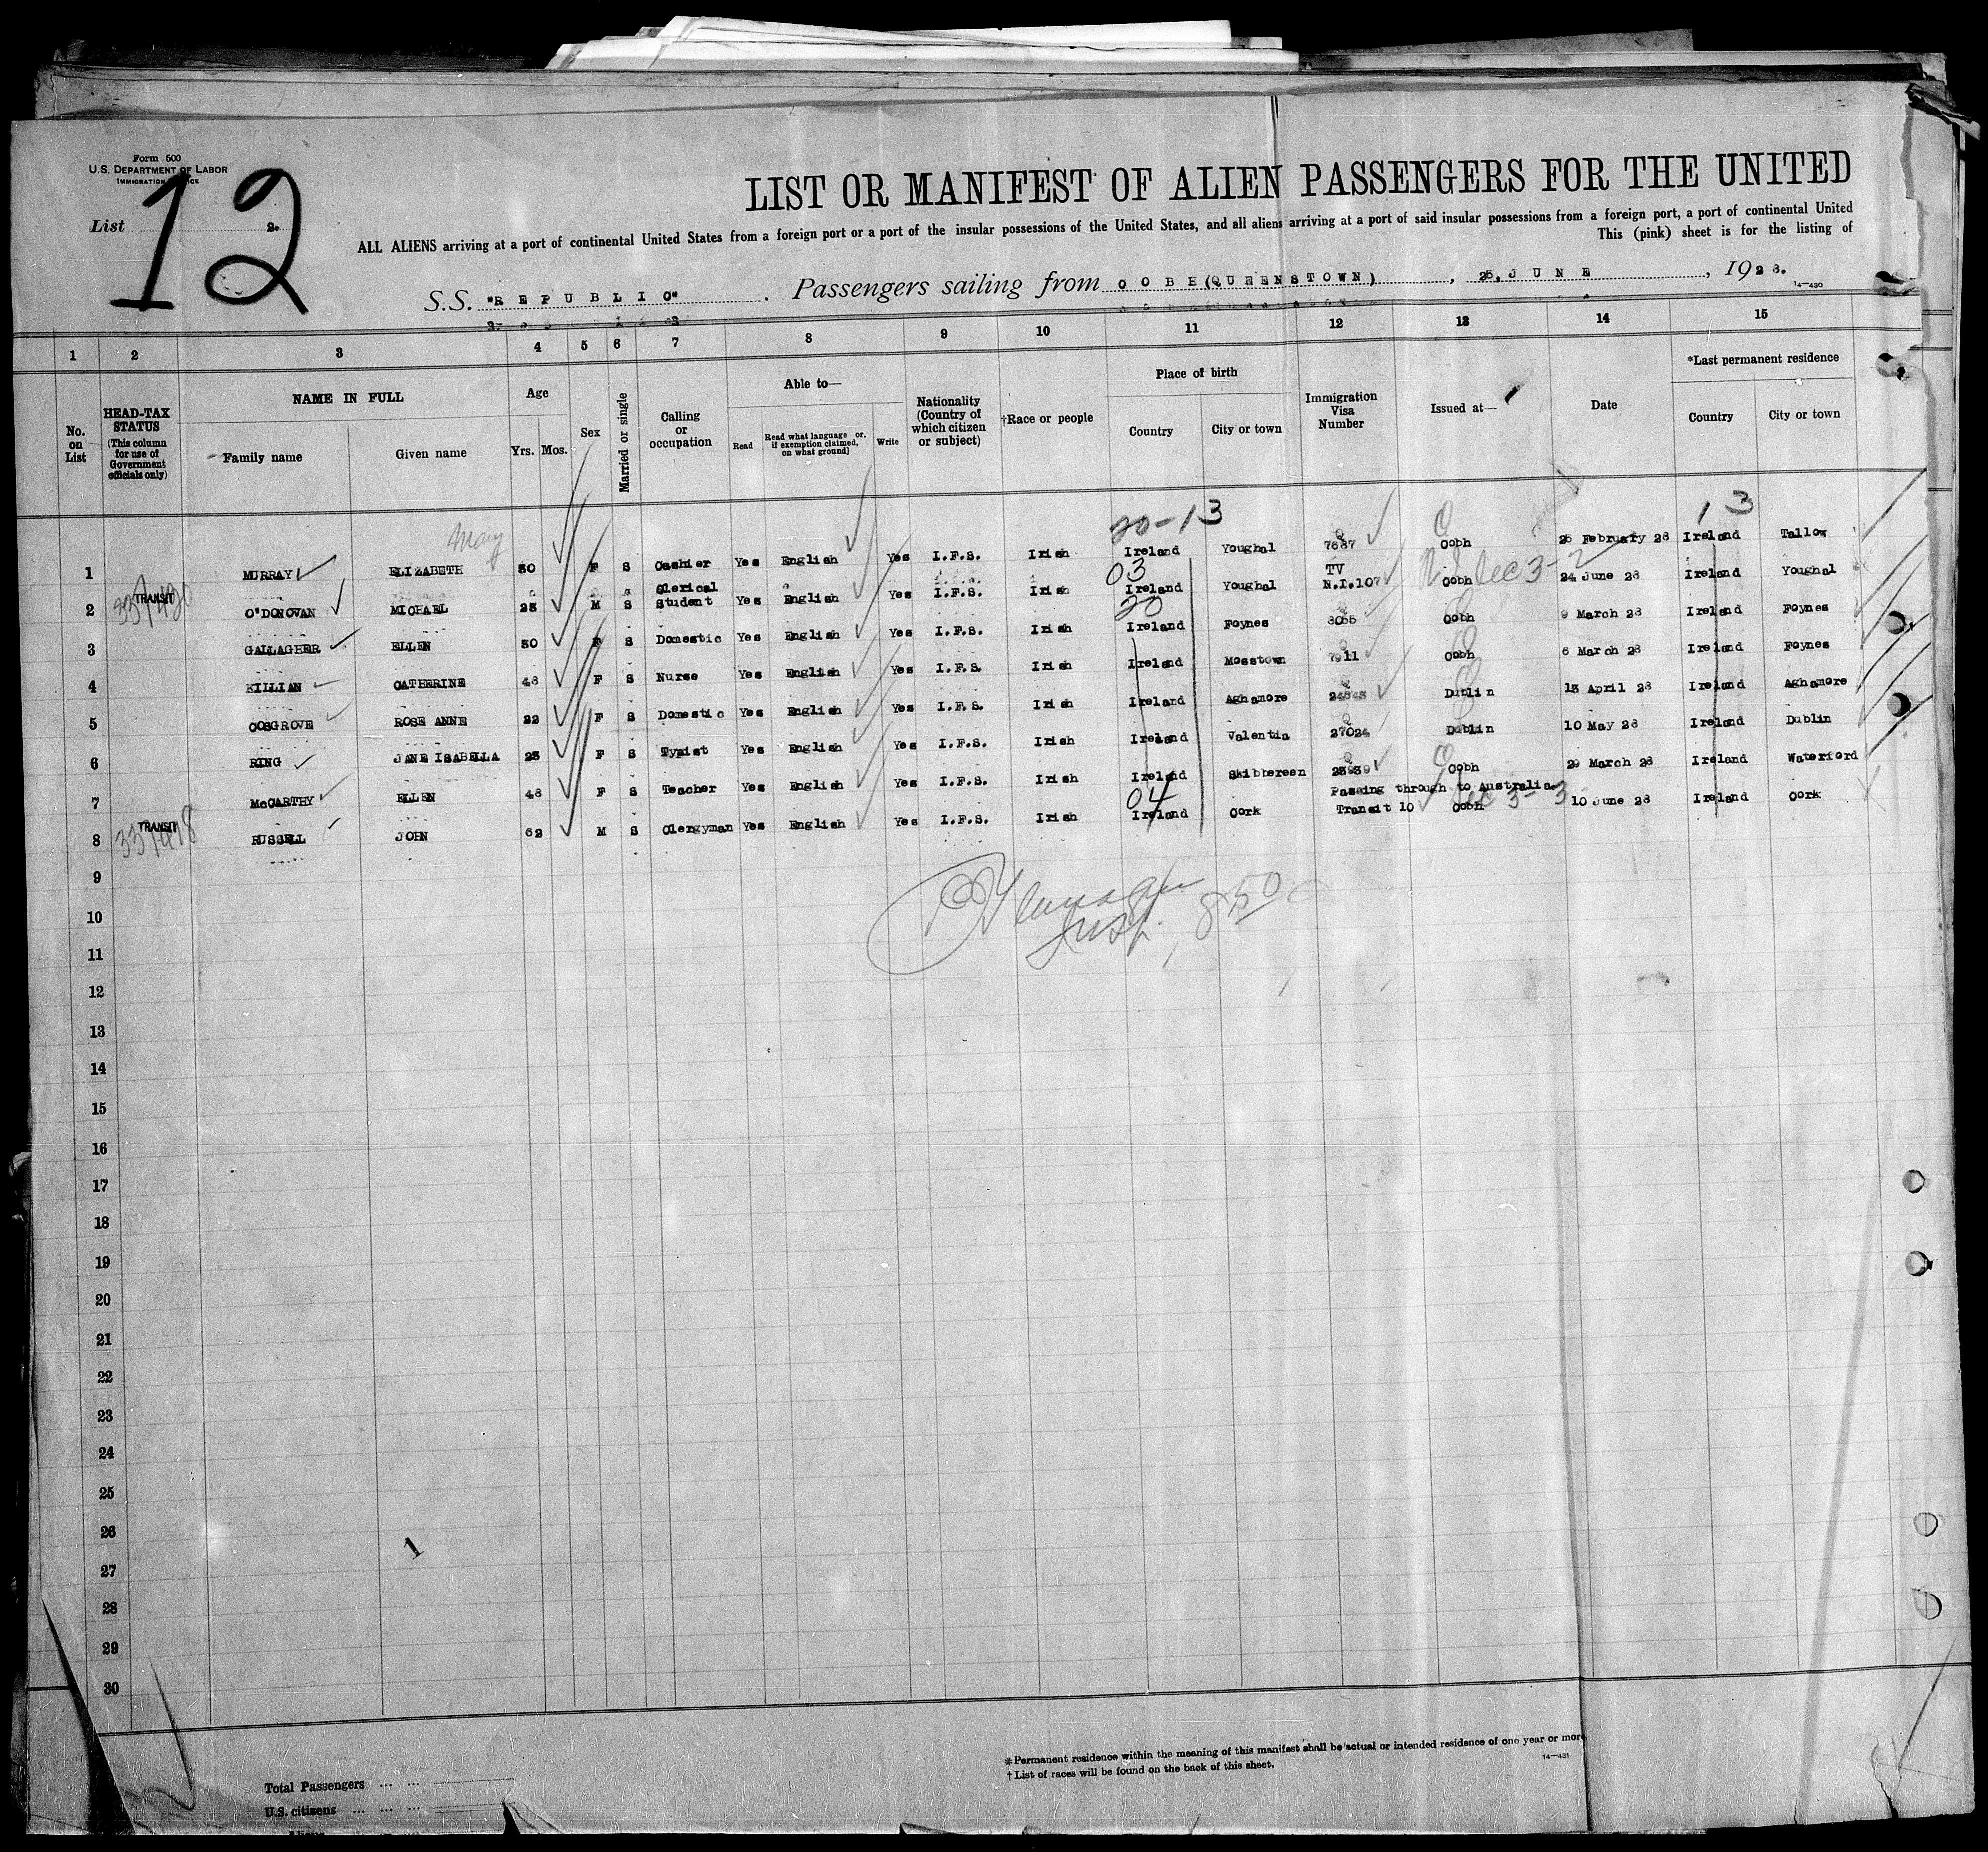 Form 500
U.S. DEPARTMENT OF LABOR
IMMIGRATION SERVICE
List 2.
12
LIST OR MANIFEST OF ALIEN PASSENGERS FOR THE UNITED
ALL ALIENS arriving at a port of continental United States from a foreign port or a port of the insular possessions of the United States, and all aliens arriving at a port of said insular possessions from a foreign port, a port of continental United
This (pink) sheet is for the listing of
S.S. "REPUBLIC". Passengers sailing from COBH (QUEENSTOWN), 25, JUNE, 1928.
14—430
1 2 3 4 5 6 7 8 9 10 11 12 13 14 15
No. on List
HEAD-TAX STATUS (This column for use of Government officials only)
NAME IN FULL
Family name Given name
Age
Yrs. Mos.
Sex
Married or single
Calling or occupation
Able to—
Read
Read what language or, if exemption claimed, on what ground]
Write
Nationality (Country of which citizen or subject)
†Race or people
Place of birth
Country City or town
Immigration Visa Number
Issued at—
Date
*Last permanent residence
Country City or town
Mary 20-13 13
1 MURRAY ELIZABETH 30 F S Cashier Yes English Yes I.F.S. Irish Ireland Youghal Q 7687 Cobh 25 February 28 Ireland Tallow
Clerical 03 TV
2 TRANSIT O'DONOVAN MICHAEL 23 M S Student Yes English Yes I.F.S. Irish Ireland Youghal N.I.107 Cobh Sec 3-2 24 June 28 Ireland Youghal
20
3 GALLAGHER ELLEN 30 F S Domestic Yes English Yes I.F.S. Irish Ireland Foynes 8055 Cobh 9 March 28 Ireland Foynes
4 KILLIAN CATHERINE 48 F S Nurse Yes English Yes I.F.S. Irish Ireland Mosstown 7911 Cobh 6 March 28 Ireland Foynes
5 COSGROVE ROSE ANNE 22 F S Domestic Yes English Yes I.F.S. Irish Ireland Aghamore Q Dublin 13 April 28 Ireland Aghamore
6 RING JANE ISABELLA 23 F S Typist Yes English Yes I.F.S. Irish Ireland Valentia Q 27024 Dublin 10 May 28 Ireland Dublin
7 McCARTHY ELLEN 48 F S Teacher Yes English Yes I.F.S. Irish Ireland Skibbereen Q Cobh 29 March 28 Ireland Waterford
04 Passing through to Australia
8 TRANSIT RUSSELL JOHN 62 M S Clergyman Yes English Yes I.F.S. Irish Ireland Cork Transit 10 Cobh Sec 3-3 10 June 28 Ireland Cork
9
10
Insp.
11
12
13
14
15
16
17
18
19
20
21
22
23
24
25
26
27
28
29
30
*Permanent residence within the meaning of this manifest shall be actual or intended residence of one year or more
†List of races will be found on the back of this sheet.
14—431
Total Passengers ... ...
U.S. citizens ... ... ...
Aliens